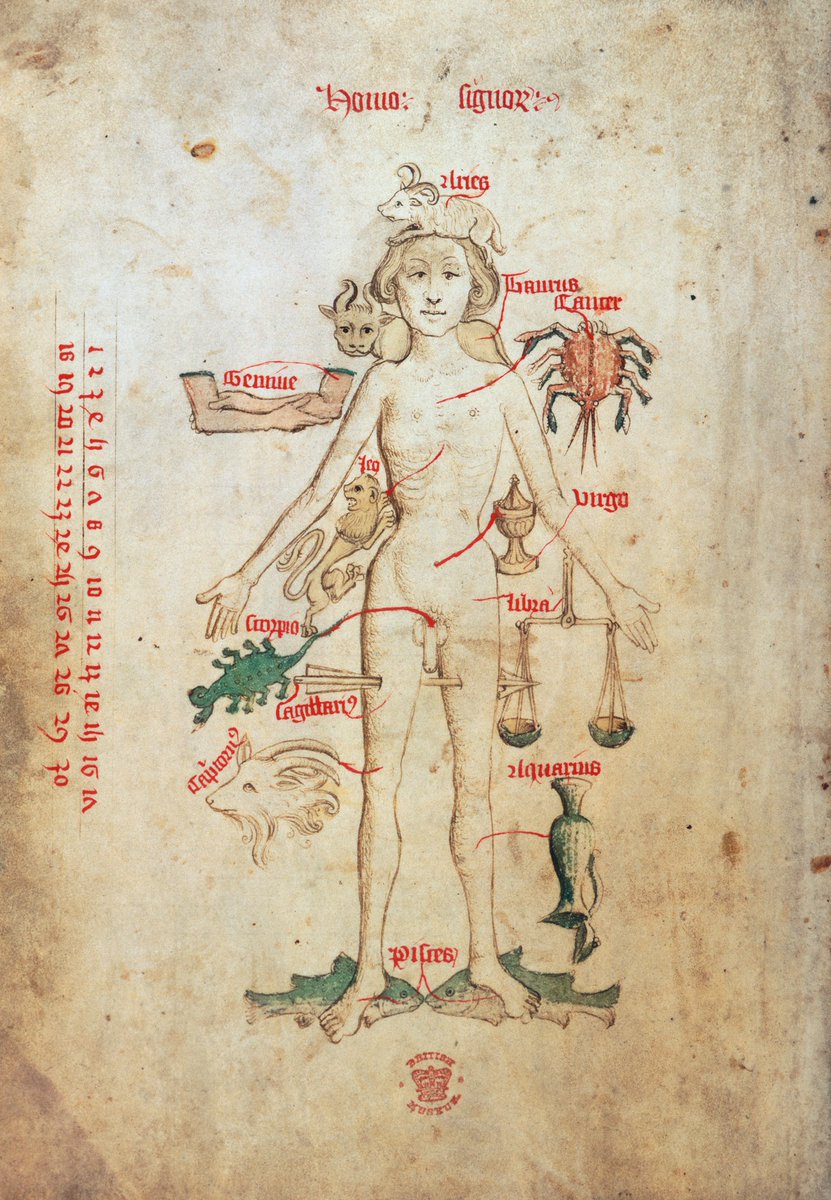 Homo: signor:
Aries
Taurus
Cancer
Gemine
leo
Virgo
libra
Scorpio
Sagittariꝰ
Capricornꝰ
Aquarius
Pisces
1 2 3 4 5 6 7 8 9 10 11 12 13 14 15 16 17
18 19 20 21 22 23 24 25 26 27 28 29 30
BRITISH
MUSEUM